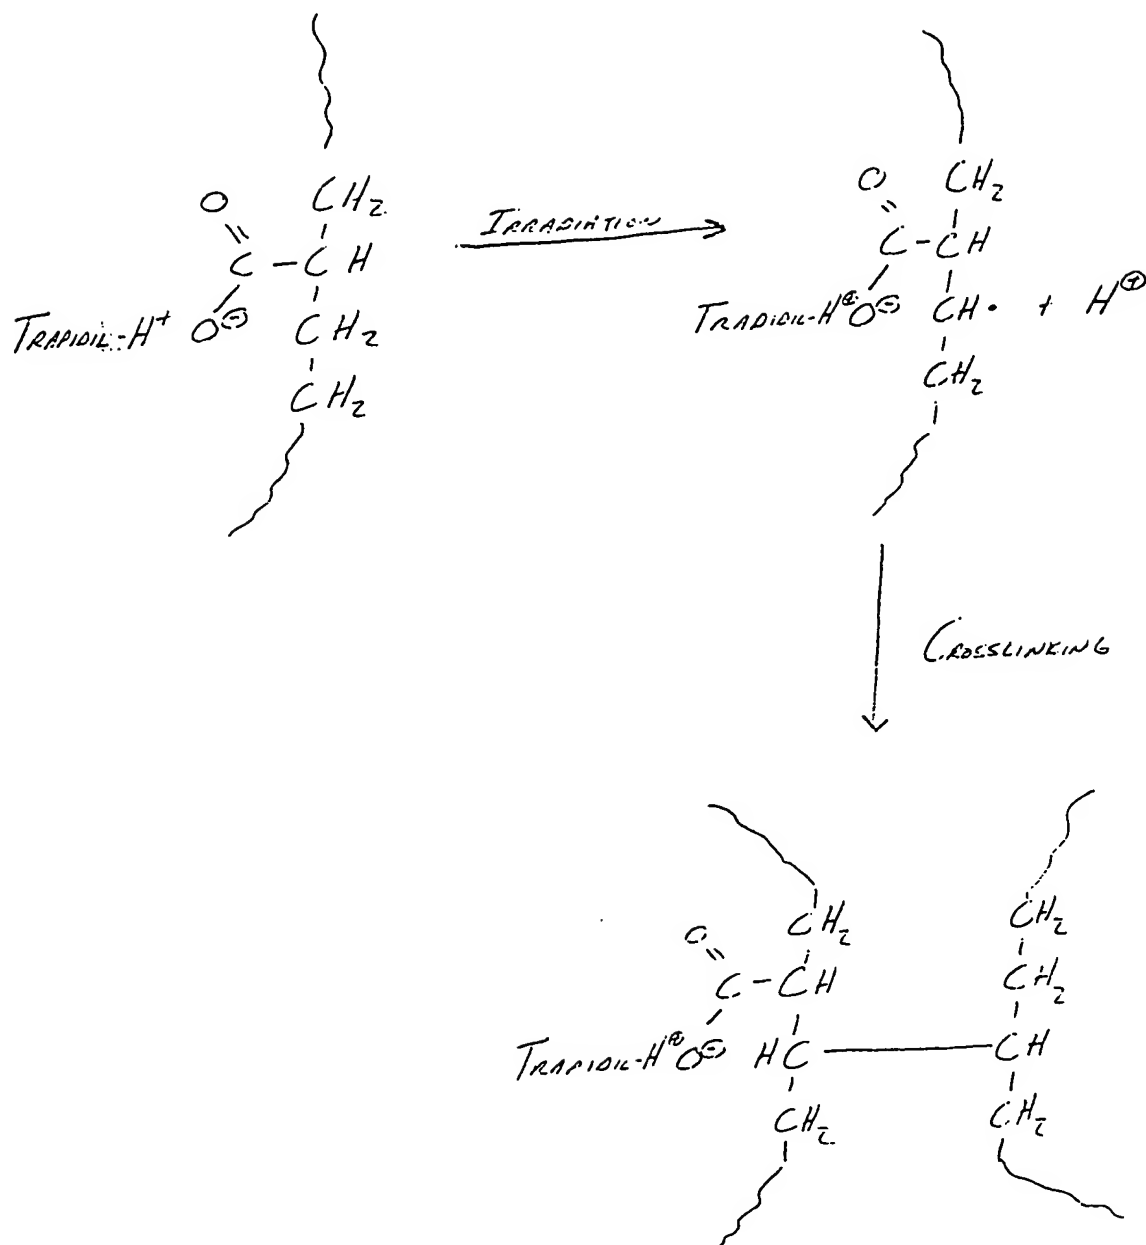 CH2
O
C - CH
TRAPIDIL-H+ O⊖
CH2
CH2
IRRADIATION
CH2
O
C - CH
TRADIDIL-H⊕ O⊖ CH• + H⊕
CH2
CROSSLINKING
CH2
O
C - CH
TRAPIDIL-H⊕ O⊖ HC
CH2
CH2
CH2
CH
CH2